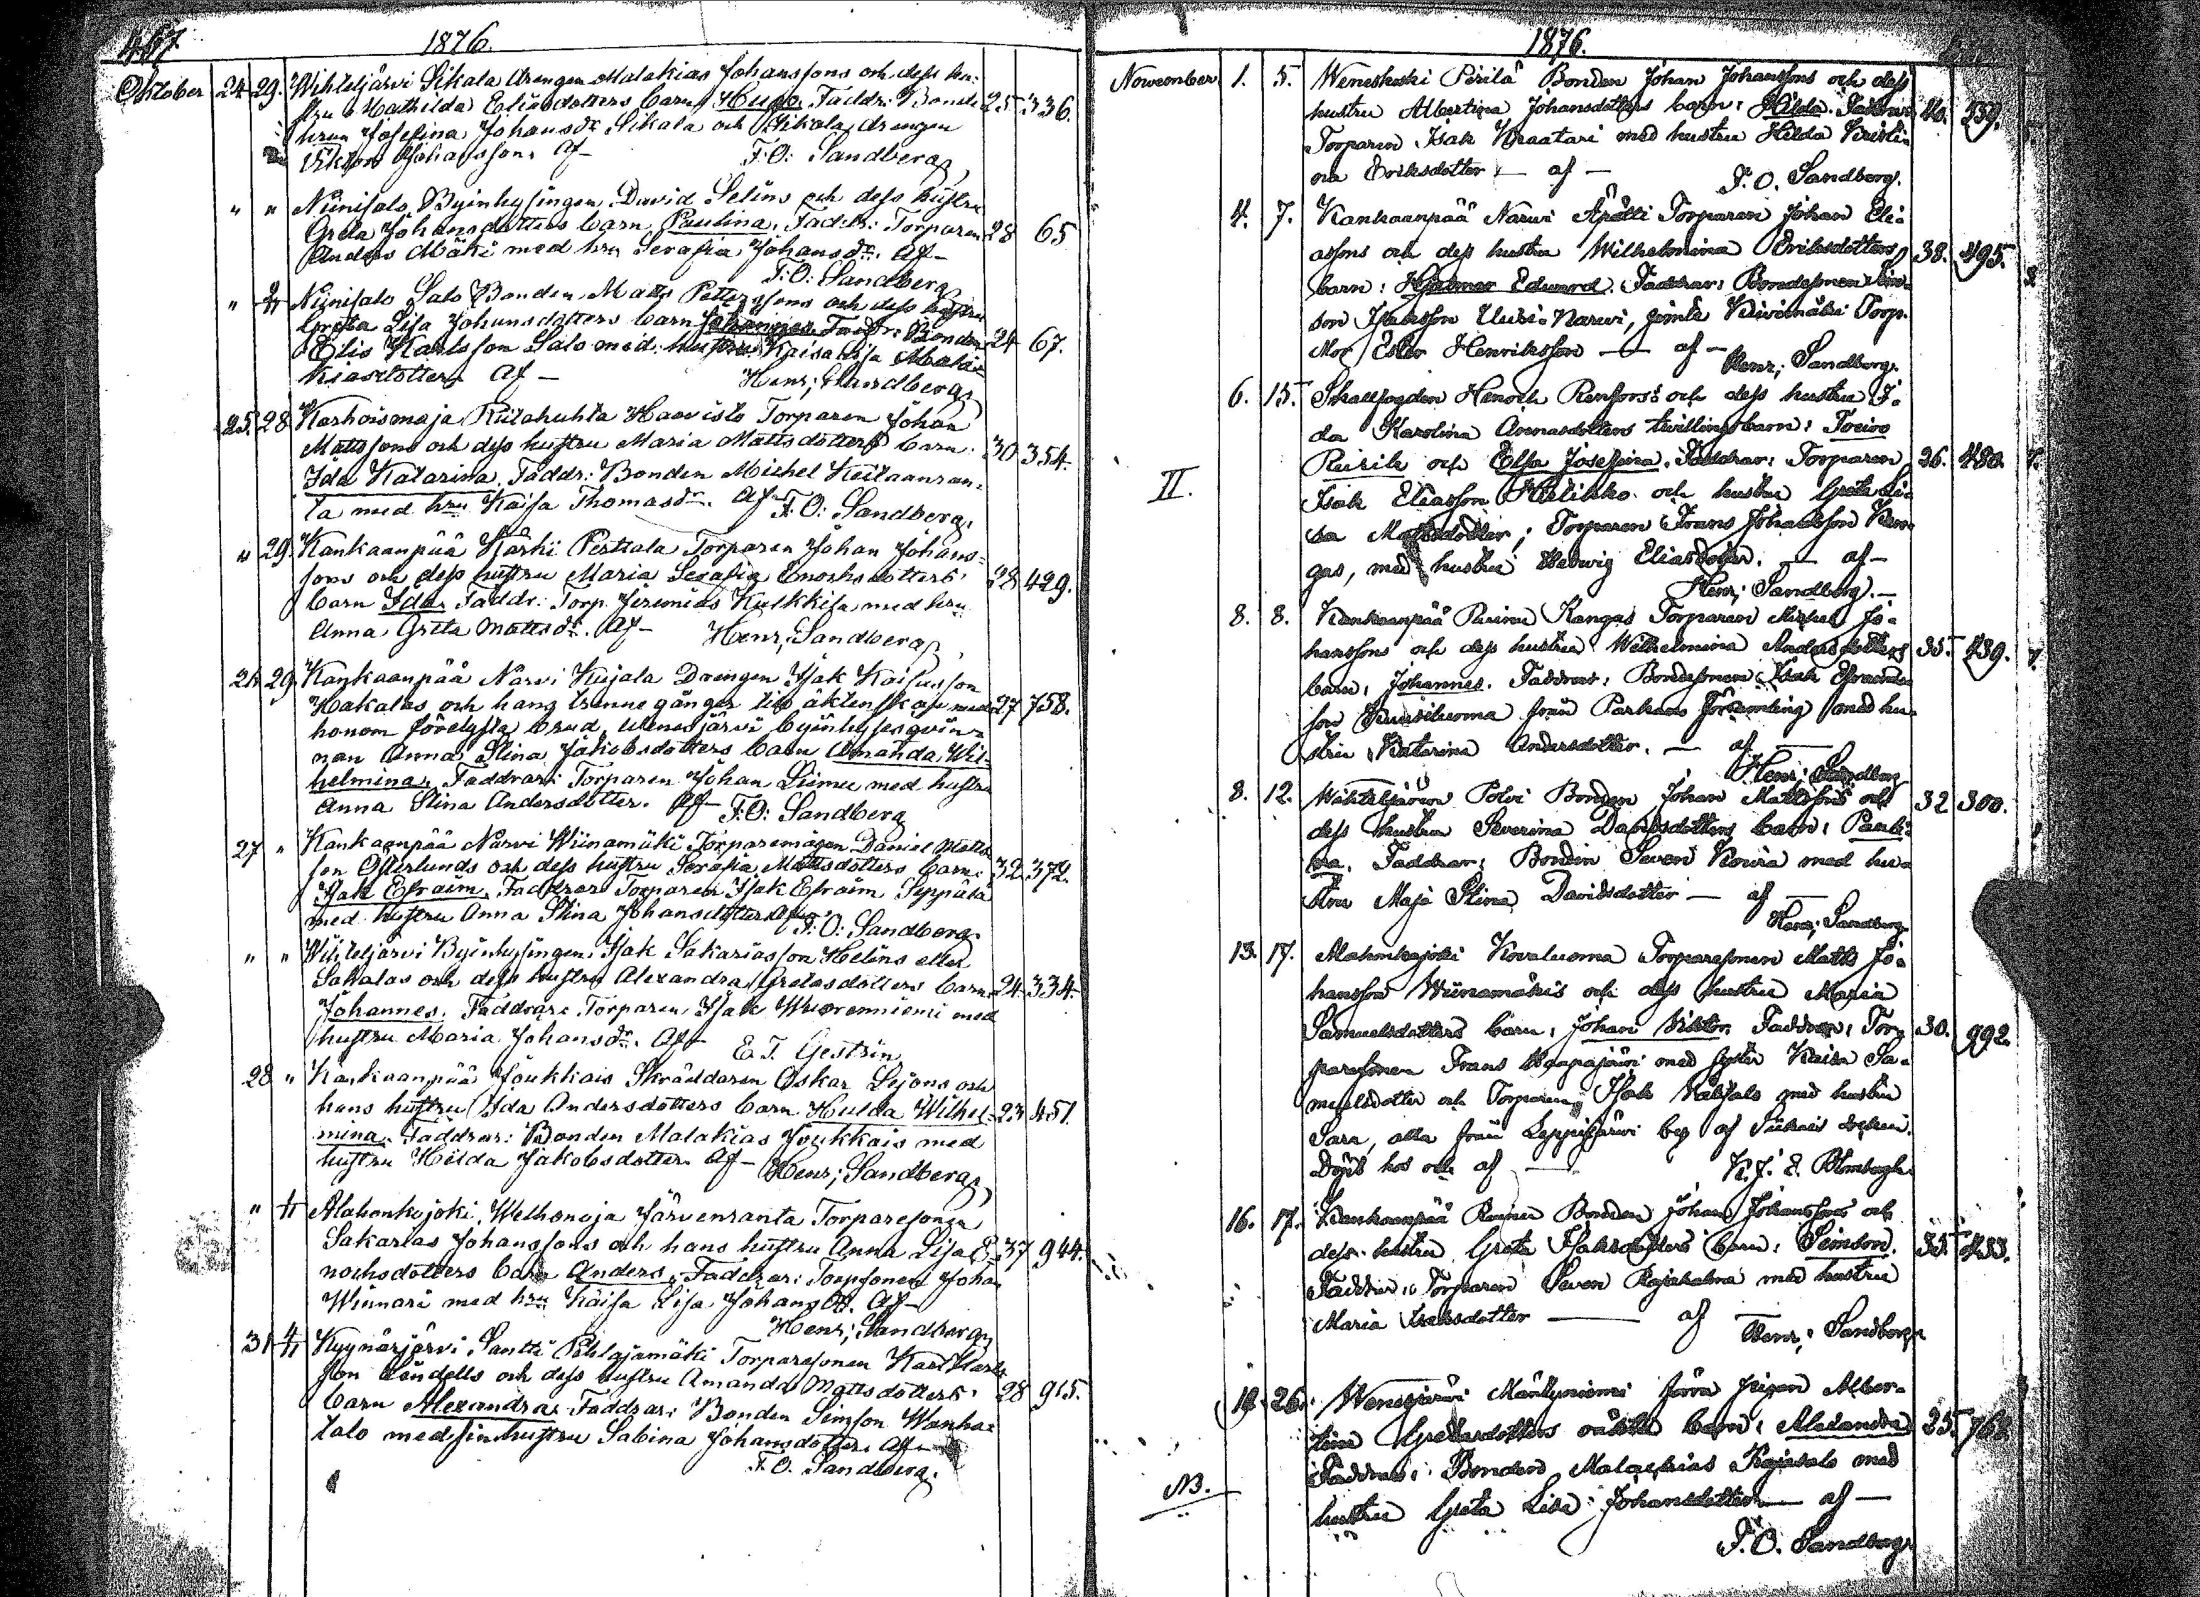 467
1876.
Oktober 24 29. Wihteljärvi Sikala drengen Malakias Johanssons och dess hu-
stru Mathilda Eliasdotters barn Hugo. Faddr: Bonde 25 336.
hrun Josefina Johansdr Sikala och Sikala drengen
Viktor Johansson. Af —
F:O: Sandberg
" " Niinisalo Byinhysingen David Selins och dess hustru
Greta Johansdotters barn Paulina. Faddr: Torparen 28 65
Anders Mäki med hru Serafia Johansdr. Af —
F:O: Sandberg
" Niinisalo Salo Bonden Matts Petterssons och dess hustru
Greta Lisa Johansdotters barn Johannes. Faddr: Bonden 24 67.
Elis Karlsson Salo med hustru Kaisa Lisa Mala-
kiasdotter. Af —
Henr; Sandberg
25. 28 Karhoismaja Riitahuhta Haavisto Torparen Johan
Mattssons och dess hustru Maria Mattsdotters barn 30 354.
Ida Katarina. Faddr: Bonden Michel Keitaanran-
ta med hru Kaisa Thomasdr. Af F:O: Sandberg.
" 29. Kankaanpää Karhi Perttala Torparen Johan Johans-
sons och dess hustru Maria Serafia Enochsdotters
barn Ida. Faddr: Torp. Jeremias Kulkkila med hru 28 429.
Anna Greta Mattsdr. Af — Henr; Sandberg
26 29. Kankaanpää Narvi Kujala Drengen Isak Kaisasson
Hakalas och hans trenne gånger till äktenskap med 27 758.
honom förelysta brud, Venesjärvi byinhysesqvin-
nan Anna Stina Jakobsdotters barn Amanda Wil-
helmina. Faddrar: Torparen Johan Liimu med hustru
Anna Stina Andersdotter. Af — F:O: Sandberg
27 " Kankaanpää Narvi Wiinamäki Torparemågen Daniel Matts
son Österlunds och dess hustru Serafia Mattsdotters barn 32 372.
Isak Efraim. Faddrar: Torparen Isak Efraim Seppälä
med hustru Anna Stina Johansdotter. Af
F:O: Sandberg.
" " Wihteljärvi Byinhysingen Isak Sakariasson Helins eller
Sakalas och dess hustru Alexandra Gretasdotters barn 24 334.
Johannes. Faddrar: Torparen Isak Wuorenniemi med
hustru Maria Johansdr. Af —
E. T. Gestrin
28 " Kankaanpää Joukkais Skräddaren Oskar Lejons och
hans hustru Ida Andersdotters barn Hulda Wilhel- 23 451.
mina. Faddrar: Bonden Malakias Joukkais med
hustru Hilda Jakobsdotter. Af — Henr; Sandberg
" Alahonkajoki Welhonoja Järvenranta Torparesonen
Sakarias Johanssons och hans hustru Anna Lisa E- 37 944.
nochsdotters barn Anders. Faddrar: Torpsonen Johan
Winnari med hru Kaisa Lisa Johansdr. Af —
Henr; Sandberg
31 Kyynärjärvi Santti Pihlajamäki Torparesonen Karl Karls
son Lindells och dess hustru Amanda Mattsdotters 28 915.
barn Alexandra. Faddrar: Bonden Simson Wanha-
talo med sin hustru Sabina Johansdotter. Af —
F.O. Sandberg.
1876.
November 1. 5. Weneskoski Perilä Bonden Johan Johanssons och dess
hustru Albertina Johansdotters barn: Hilda. Faddrar 40. 339.
Torparen Isak Kraatari med hustru Hilda Kristi-
na Eriksdotter — af —
F. O. Sandberg.
4. 7. Kankaanpää Narwi Torparen Johan Eli-
assons och dess hustru Wilhelmina Eriksdotters 38. 495.
barn: Hjalmar Edward. Faddrar: Bondesonen Sim-
son Isaksson Uusi-Narwi, jemte Kiwimäki Torp.
Mor Ester Henriksson — af —
Henr; Sandberg.
6. 15. Skallfogden Henoch Renfors's och dess hustru I-
da Karolina Annasdotters tvillingbarn: Toiwo
II.
och Elsa Josefina. Faddrar: Torparen 26. 480.
Isak Eliasson och hustru Greta Li-
sa Mattsdotter; Torparen Frans Johansson Kan-
gas, med hustru Hedwig Eliasdotter. — af —
Henr; Sandberg. —
8. 8. Kankaanpää Ruinu Kangas Torparen Michel Jo-
hanssons och dess hustru Wilhelmina Andersdotters 35. 439.
barn: Johannes. Faddrar: Bondesonen Isak Efraims-
son Kuusiluoma från Parkano församling med hu-
stru Katarina Andersdotter. — af —
Henr; Sandberg
8. 12. Wihteljärvi Polvi Bonden Johan Mattssons och 32 300.
dess hustru Severina Davidsdotters barn: Pauli-
na. Faddrar: Bonden Seven Kowia med hu-
stru Maja Stina Davidsdotter — af —
Henr; Sandberg
13. 17. Alahonkajoki Kovaluoma Torparesonen Matts Jo-
hansson Wiinamäkis och dess hustru Maria
Samuelsdotters barn: Johan Viktor. Faddrar: Tor- 30. 992.
paresonen Frans Haapajärvi med syster Kaisa Sa-
muelsdotter och Torparen Isak med hustru
Sara, alla från Leppijärwi by af Siikais socken.
Döpt hos och af —
K. J. E. Blombergh.
16. 17. Kankaanpää Ruinu Bonden Johan Johanssons och
dess hustru Greta Isaksdotters barn: Simson. 35 433.
Faddrar: Torparen Seven Rajakalma med hustru
Maria Isaksdotter — af —
Henr; Sandberg
19. 26. Wenesjärvi Mäntyniemi förra pigan Alber-
tina Gretasdotters oäkta barn: Alexandra 25. 762.
Faddrar: Bonden Malachias Rajasalo med
NB.
hustru Greta Lisa Johansdotter — af —
F. O. Sandberg